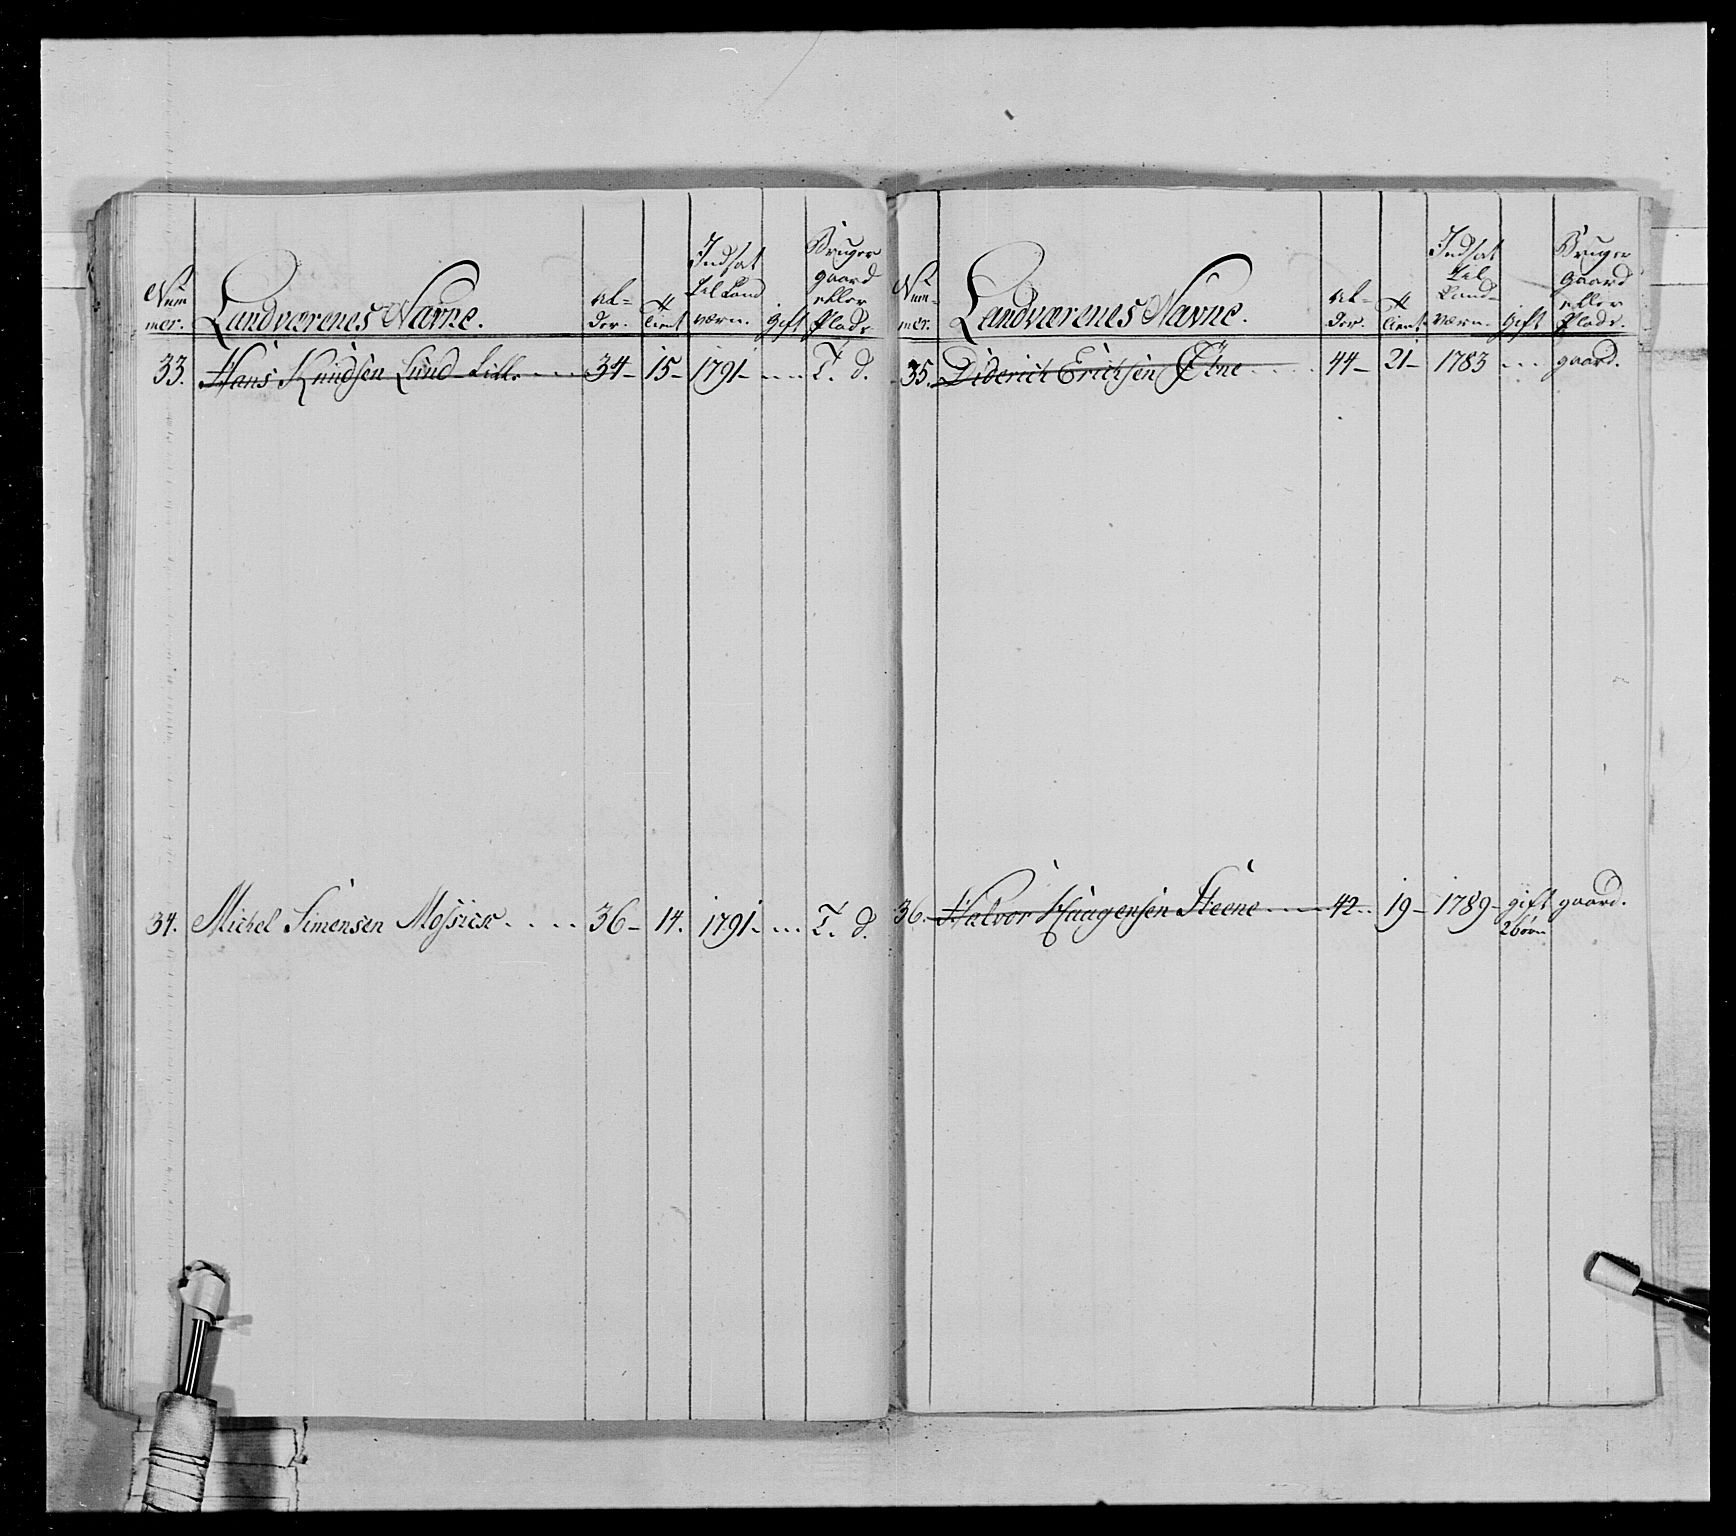 Num
mer.
Landværenes Navne.
Al-
der.
Tient
Indsat
til Land
værn.
gift
Bruger
gaard
eller
Plads.
33. Hans Knudsen Lund lille 34 - 15 - 1791 - T. d.
34. Michel Simensen 36 - 14. 1791 - T. d.
Num-
mer.
Landværenes Navne.
Al-
der.
Tient
Indsat
til
Land-
værn.
gift
Bruger
Gaard
eller
Plads.
35. Diderich Erichsen 44 - 21 - 1783 gaard.
36. Halvor Haagensen Steene 42 19 - 1789 - gift gaard.
2 børn